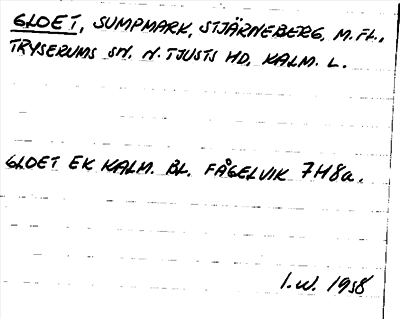 GLOET, SUMPMARK, STJÄRNEBERG, M.FL.,
TRYSERUMS SN. N. TJUSTS HD. KALM. L.
GLOET EK KALM. BL. FÅGELVIK 7H8a.
I.W. 1958